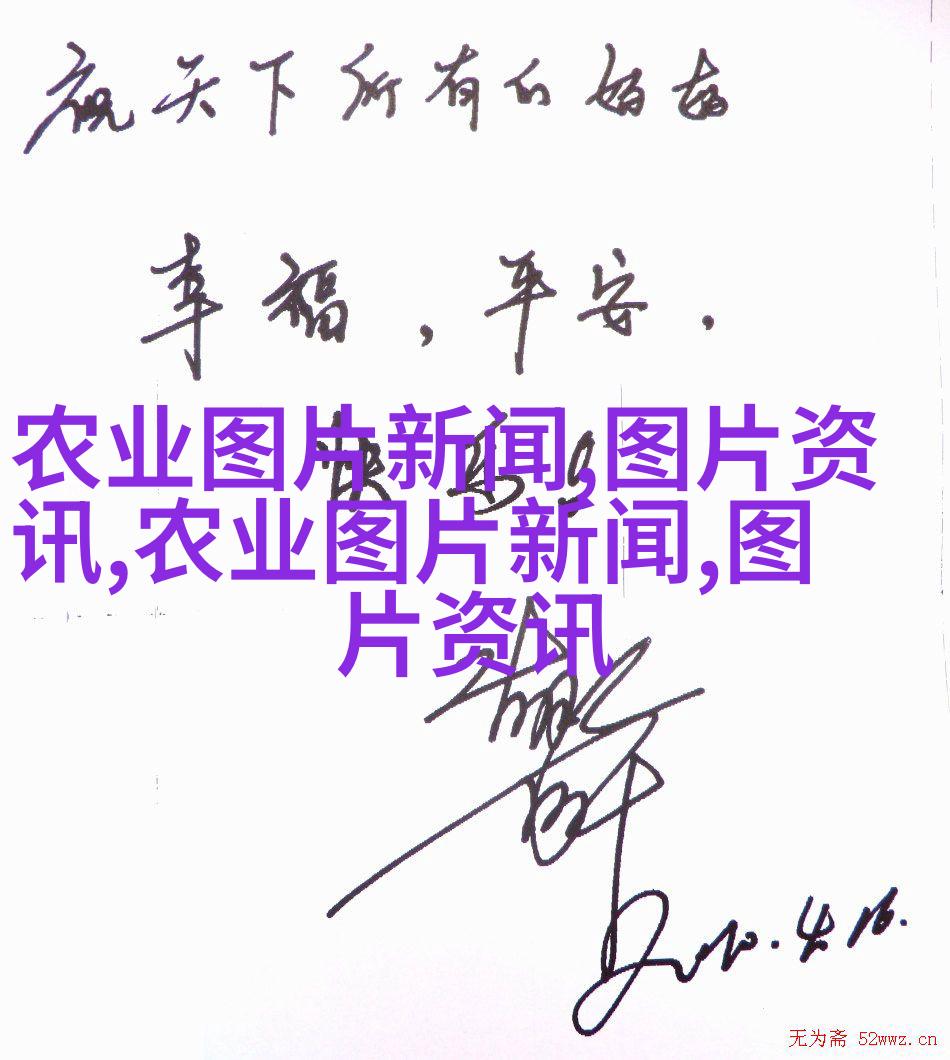 祝天下所有的妈妈
幸福，平安，
农业图片新闻,图片资
讯,农业图片新闻,图
片资讯
2010.4.16.
无为斋 52wwz.cn